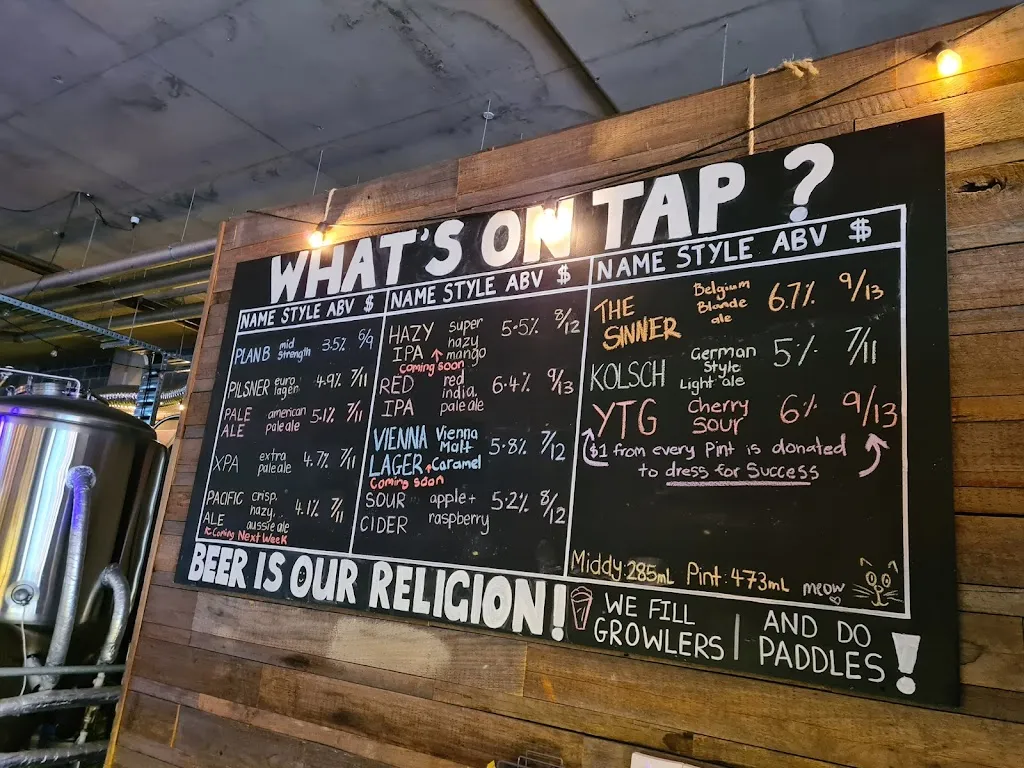 WHAT'S ON TAP ?
NAME STYLE ABV $
PLAN B mid strength 3.5% 6/9
PILSNER euro lager 4.9% 7/11
PALE ALE american pale ale 5.1% 7/11
XPA extra pale ale 4.7% 7/11
PACIFIC ALE crisp, hazy, aussie ale 4.1% 7/11
Coming Next Week
NAME STYLE ABV $
HAZY IPA super hazy mango 5.5% 8/12
Coming soon
RED IPA red india pale ale 6.4% 9/13
VIENNA LAGER Vienna Malt Caramel 5.8% 7/12
Coming soon
SOUR CIDER apple + raspberry 5.2% 8/12
NAME STYLE ABV $
THE SINNER Belgium Blonde ale 6.7% 9/13
KOLSCH German Style Light ale 5% 7/11
YTG Cherry SOUR 6% 9/13
$1 from every Pint is donated
to dress for Success
Middy: 285mL Pint: 473mL meow
BEER IS OUR RELIGION!
WE FILL
GROWLERS
AND DO
PADDLES!